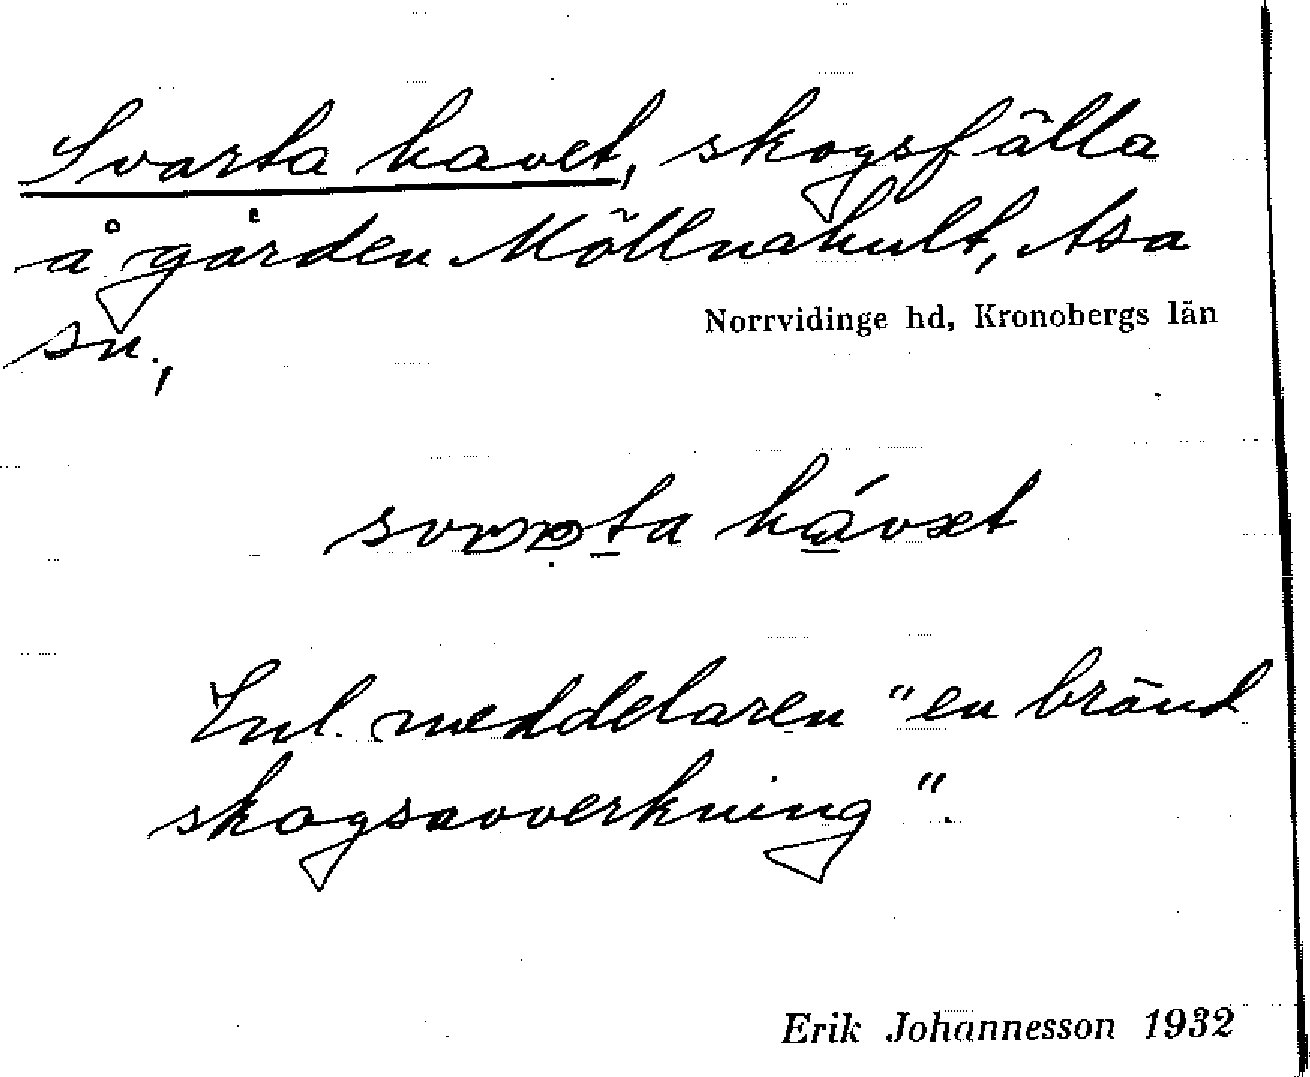 Svarta havet, skogsfälla
å gården Möllnahult, Asa
Norrvidinge hd, Kronobergs län
sn.,
Enl. meddelaren "en bränd
skogsavverkning".
Erik Johannesson 1932